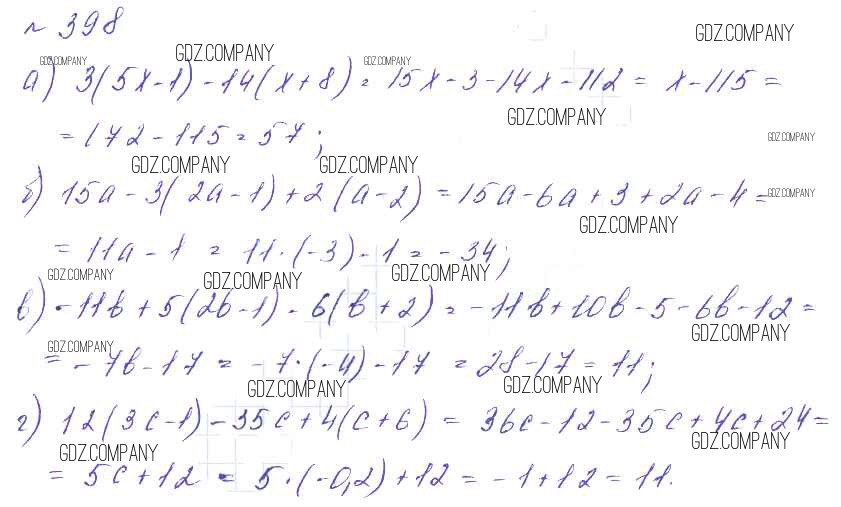 № 398
GDZ.COMPANY
GDZ.COMPANY GDZ.COMPANY GDZ.COMPANY
а) 3(5x-1) - 14(x+8) = 15x - 3 - 14x - 112 = x - 115 =
GDZ.COMPANY
= 172 - 115 = 57;
GDZ.COMPANY
GDZ.COMPANY GDZ.COMPANY
б) 15a - 3(2a-1) + 2(a-2) = 15a - 6a + 3 + 2a - 4 =
GDZ.COMPANY
GDZ.COMPANY
= 11a - 1 = 11·(-3) - 1 = -34;
GDZ.COMPANY GDZ.COMPANY GDZ.COMPANY
в) -11b + 5(2b-1) - 6(b+2) = -11b + 10b - 5 - 6b - 12 =
GDZ.COMPANY
GDZ.COMPANY
= -7b - 17 = -7·(-4) - 17 = 28 - 17 = 11;
GDZ.COMPANY GDZ.COMPANY
г) 12(3c-1) - 35c + 4(c+6) = 36c - 12 - 35c + 4c + 24 =
GDZ.COMPANY
GDZ.COMPANY
= 5c + 12 = 5·(-0,2) + 12 = -1 + 12 = 11.